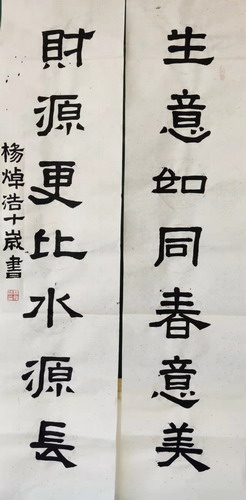 生意如同春意美
財源更比水源長
楊焯浩十歲書